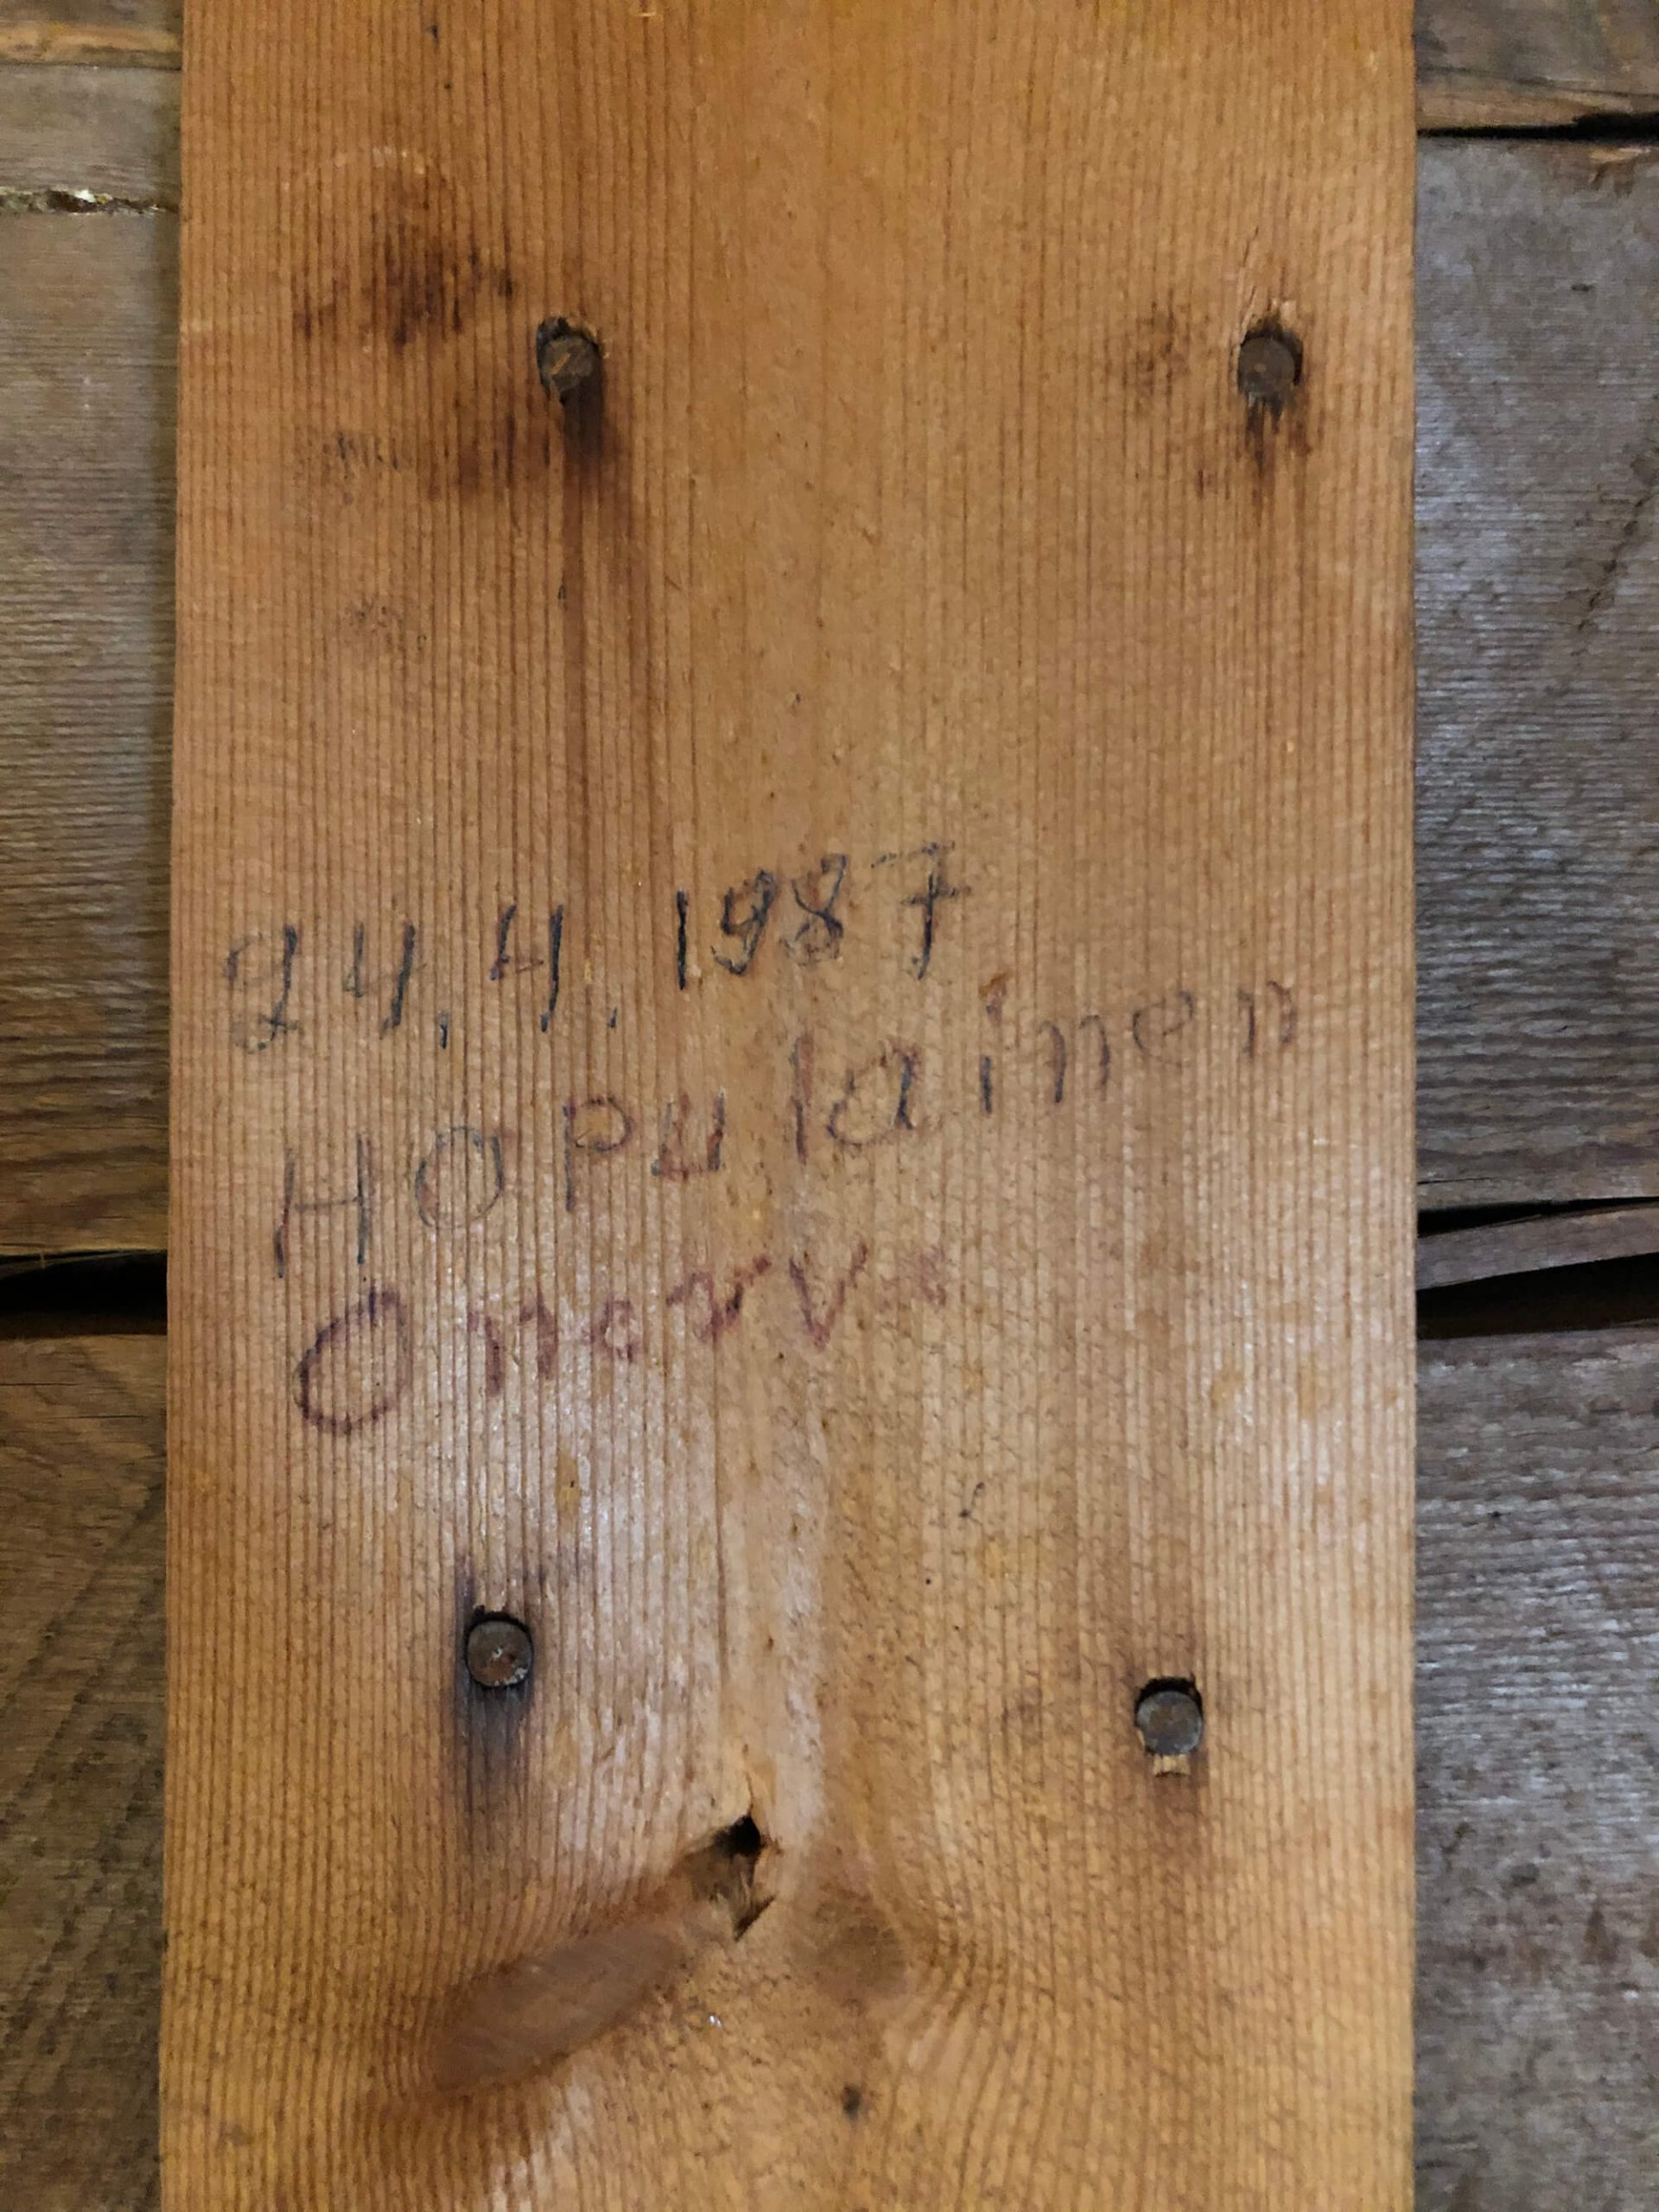 24.4.1987
Hopulainen
Onerva